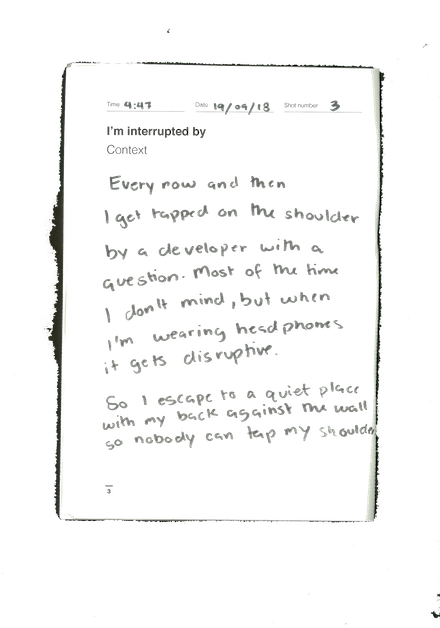 Time 4:47 Date 19/09/18 Shot number 3
I'm interrupted by
Context
Every now and then
I get tapped on the shoulder
by a developer with a
question. Most of the time
I don't mind, but when
I'm wearing headphones
it gets disruptive.
So I escape to a quiet place
with my back against the wall
so nobody can tap my shoulder
3